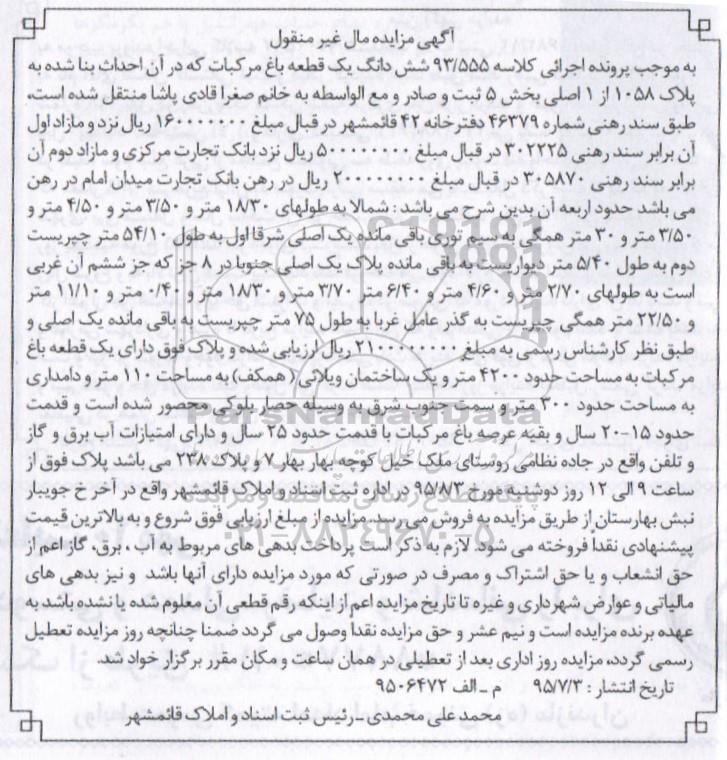 آگهی مزایده مال غیر منقول
به موجب پرونده اجرائی کلاسه ۹۳/۵۵۵ شش دانگ یک قطعه باغ مرکبات که در آن احداث بنا شده به
پلاک ۱۰۵۸ از ۱ اصلی بخش ۵ ثبت و صادر و مع الواسطه به خانم صغرا قادی پاشا منتقل شده است،
طبق سند رهنی شماره ۴۶۳۷۹ دفترخانه ۴۲ قائمشهر در قبال مبلغ ۱۶۰۰۰۰۰۰۰۰ ریال نزد و مازاد اول
آن برابر سند رهنی ۳۰۲۲۲۵ در قبال مبلغ ۵۰۰۰۰۰۰۰۰۰ ریال نزد بانک تجارت مرکزی و مازاد دوم آن
برابر سند رهنی ۳۰۵۸۷۰ در قبال مبلغ ۲۰۰۰۰۰۰۰۰۰ ریال در رهن بانک تجارت میدان امام در رهن
می باشد حدود اربعه آن بدین شرح می باشد: شمالا به طولهای ۱۸/۳۰ متر و ۳/۵۰ متر و ۴/۵۰ متر و
۳/۵۰ متر و ۳۰ متر همگی به سیم توری باقی مانده یک اصلی شرقا اول به طول ۵۴/۱۰ متر چپریست
دوم به طول ۵/۴۰ متر دیواریست به باقی مانده پلاک یک اصلی جنوبا در ۸ جز که جز ششم آن غربی
است به طولهای ۲/۷۰ متر و ۴/۶۰ متر و ۶/۴۰ متر ۳/۷۰ متر و ۱۸/۳۰ متر و ۰/۴۰ متر و ۱۱/۱۰ متر
و ۲۲/۵۰ متر همگی چپریست به گذر عامل غربا به طول ۷۵ متر چپریست به باقی مانده یک اصلی و
طبق نظر کارشناس رسمی به مبلغ ریال ارزیابی شده و پلاک فوق دارای یک قطعه باغ
مرکبات به مساحت حدود ۴۲۰۰ متر و یک ساختمان ویلائی (همکف) به مساحت ۱۱۰ متر و دامداری
به مساحت حدود ۳۰۰ متر و سمت جنوب شرق به وسیله حصار بلوکی محصور شده است و قدمت
حدود ۱۵-۲۰ سال و بقیه عرصه باغ مرکبات با قدمت حدود ۲۵ سال و دارای امتیازات آب برق و گاز
و تلفن واقع در جاده نظامی روستای ملک خیل کوچه بهار بهار ۷ و پلاک ۲۳۸ می باشد پلاک فوق از
ساعت ۹ الی ۱۲ روز دوشنبه مورخ ۹۵/۸/۳ در اداره ثبت اسناد و املاک قائمشهر واقع در آخر خ جویبار
نبش بهارستان از طریق مزایده به فروش می رسد. مزایده از مبلغ ارزیابی فوق شروع و به بالاترین قیمت
پیشنهادی نقداً فروخته می شود. لازم به ذکر است پرداخت بدهی های مربوط به آب، برق، گاز اعم از
حق انشعاب و یا حق اشتراک و مصرف در صورتی که مورد مزایده دارای آنها باشد و نیز بدهی های
مالیاتی و عوارض شهرداری و غیره تا تاریخ مزایده اعم از اینکه رقم قطعی آن معلوم شده یا نشده باشد به
عهده برنده مزایده است و نیم عشر و حق مزایده نقداً وصول می گردد ضمنا چنانچه روز مزایده تعطیل
رسمی گردد، مزایده روز اداری بعد از تعطیلی در همان ساعت و مکان مقرر برگزار خواهد شد.
تاریخ انتشار: ۹۵/۷/۳ م ـ الف ۹۵۰۶۴۷۲
محمد علی محمدی ـ رئیس ثبت اسناد و املاک قائمشهر
ParsNamadData
پایگاه اطلاع رسانی مناقصه و مزایده
۰۲۱-۸۸۳۴۹۶۷۰-۵